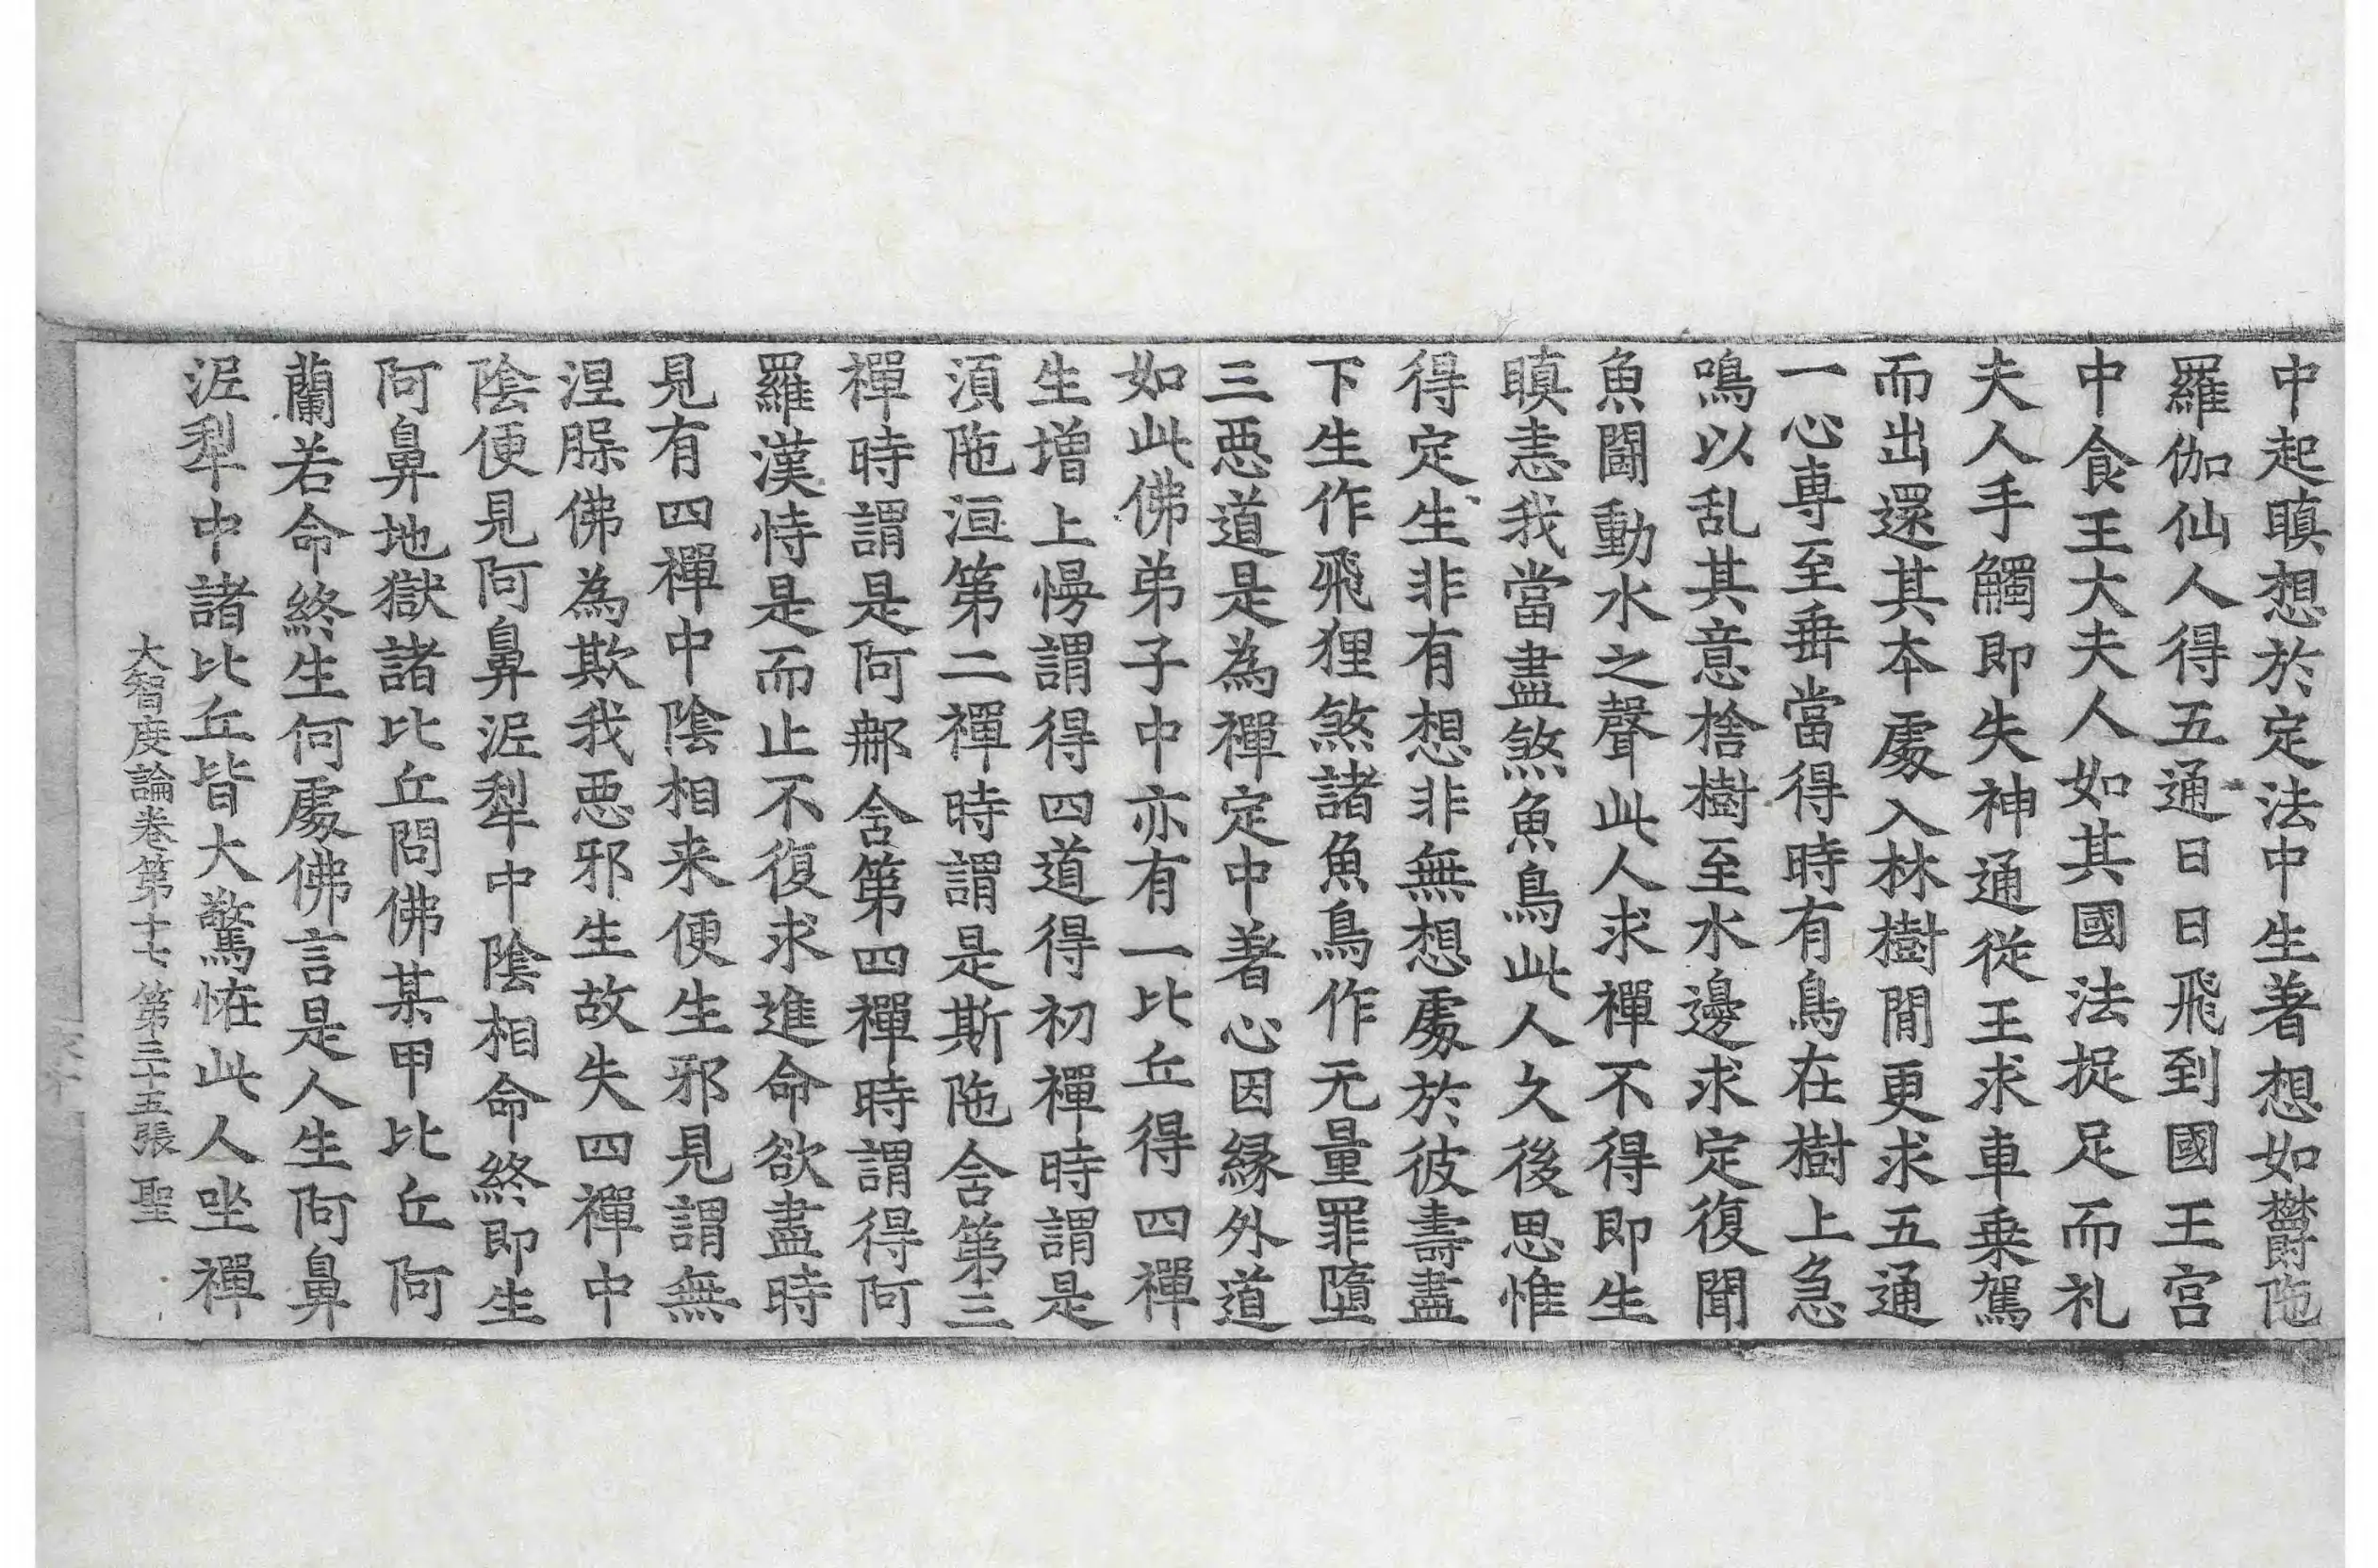 中起瞋想於定法中生著想如欝陁
羅伽仙人得五通日日飛到國王宮
中食王大夫人如其國法捉足而礼
夫人手觸即失神通從王求車乗駕
而出還其本處入林樹間更求五通
一心專至垂當得時有鳥在樹上急
鳴以乱其意捨樹至水邊求定復聞
魚鬪動水之聲此人求禪不得即生
瞋恚我當盡煞魚鳥此人久後思惟
得定生非有想非無想處於彼壽盡
下生作飛狸煞諸魚鳥作无量罪墮
三惡道是為禪定中著心因緣外道
如此佛弟子中亦有一比丘得四禪
生增上慢謂得四道得初禪時謂是
須陁洹第二禪時謂是斯陁含第三
禪時謂是阿那含第四禪時謂得阿
羅漢恃是而止不復求進命欲盡時
見有四禪中陰相来便生邪見謂無
涅槃佛為欺我惡邪生故失四禪中
陰便見阿鼻泥犁中陰相命終即生
阿鼻地獄諸比丘問佛某甲比丘阿
蘭若命終生何處佛言是人生阿鼻
泥犁中諸比丘皆大驚恠此人坐禪
大智度論卷第十七 第三十五張 聖